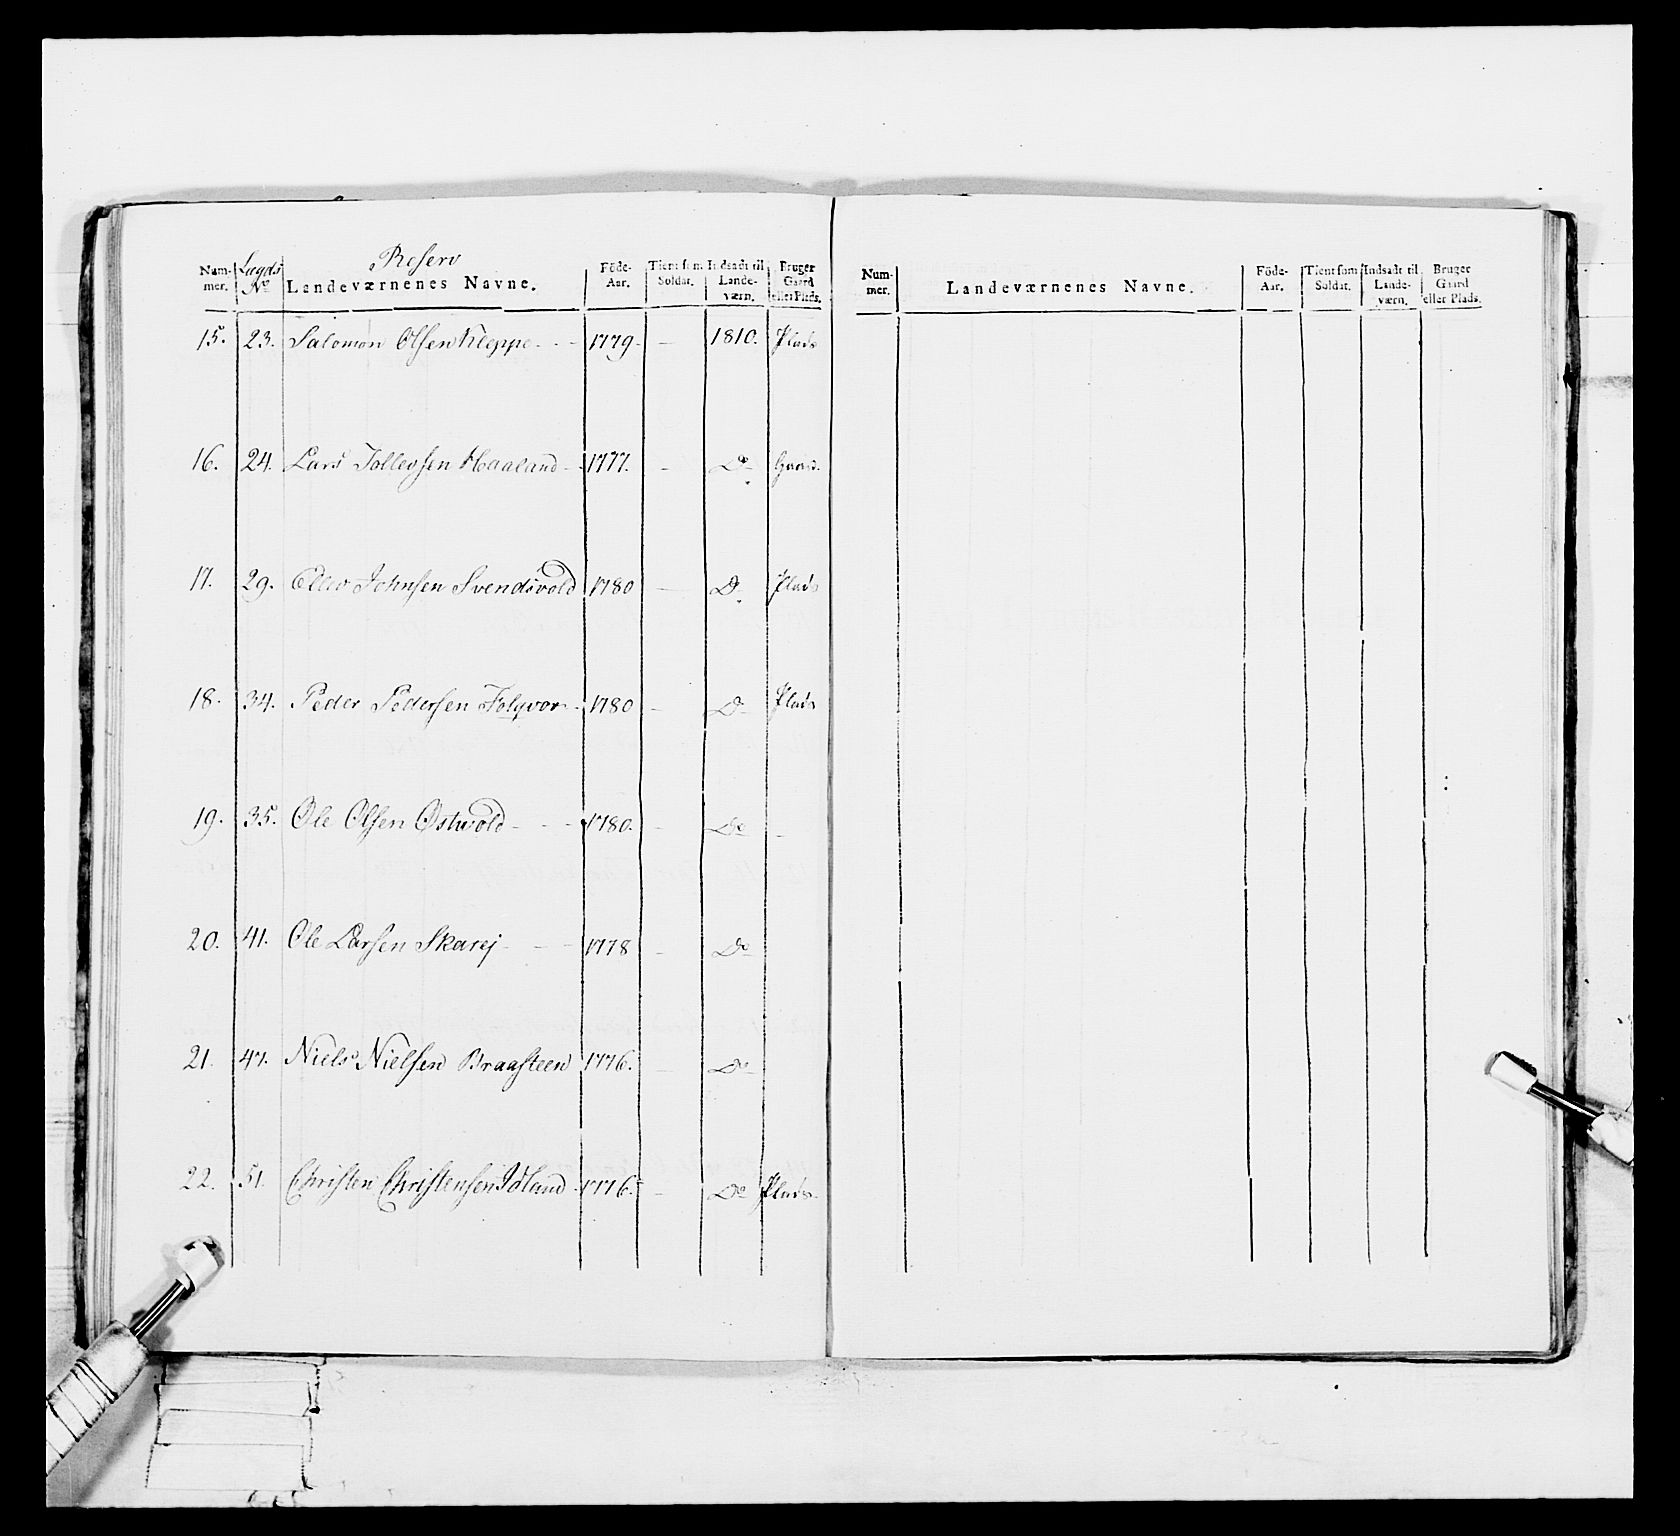 Reserv
Num- Lægds Föde- Tient som Indsadt til Bruger
mer. No Landeværnenes Navne. Aar. Soldat. Lande- Gaard
værn. eller Plads.
15. 23. Salomon Olsen Kleppe - - 1779 - 1810. Plads
16. 24. Lars Tollevsen Haaland - 1777. - Do Gaard.
17. 29. Ellev Johnsen Svendsvold 1780 - Do Plads
18. 34. Peder Pedersen - 1780 - Do Plads
19. 35. Ole Olsen Østvold - - - 1780. - Do -
20. 41. Ole Larsen Skarej - - - 1778 - Do
21. 47. Niels Nielsen Braasteen 1776. - Do
22. 51. Christen Christensen Idland - 1776. - Do Plads.
Num- Föde- Tient som Indsadt til Bruger
mer. Landeværnenes Navne. Aar. Soldat. Lande- Gaard
værn. eller Plads.